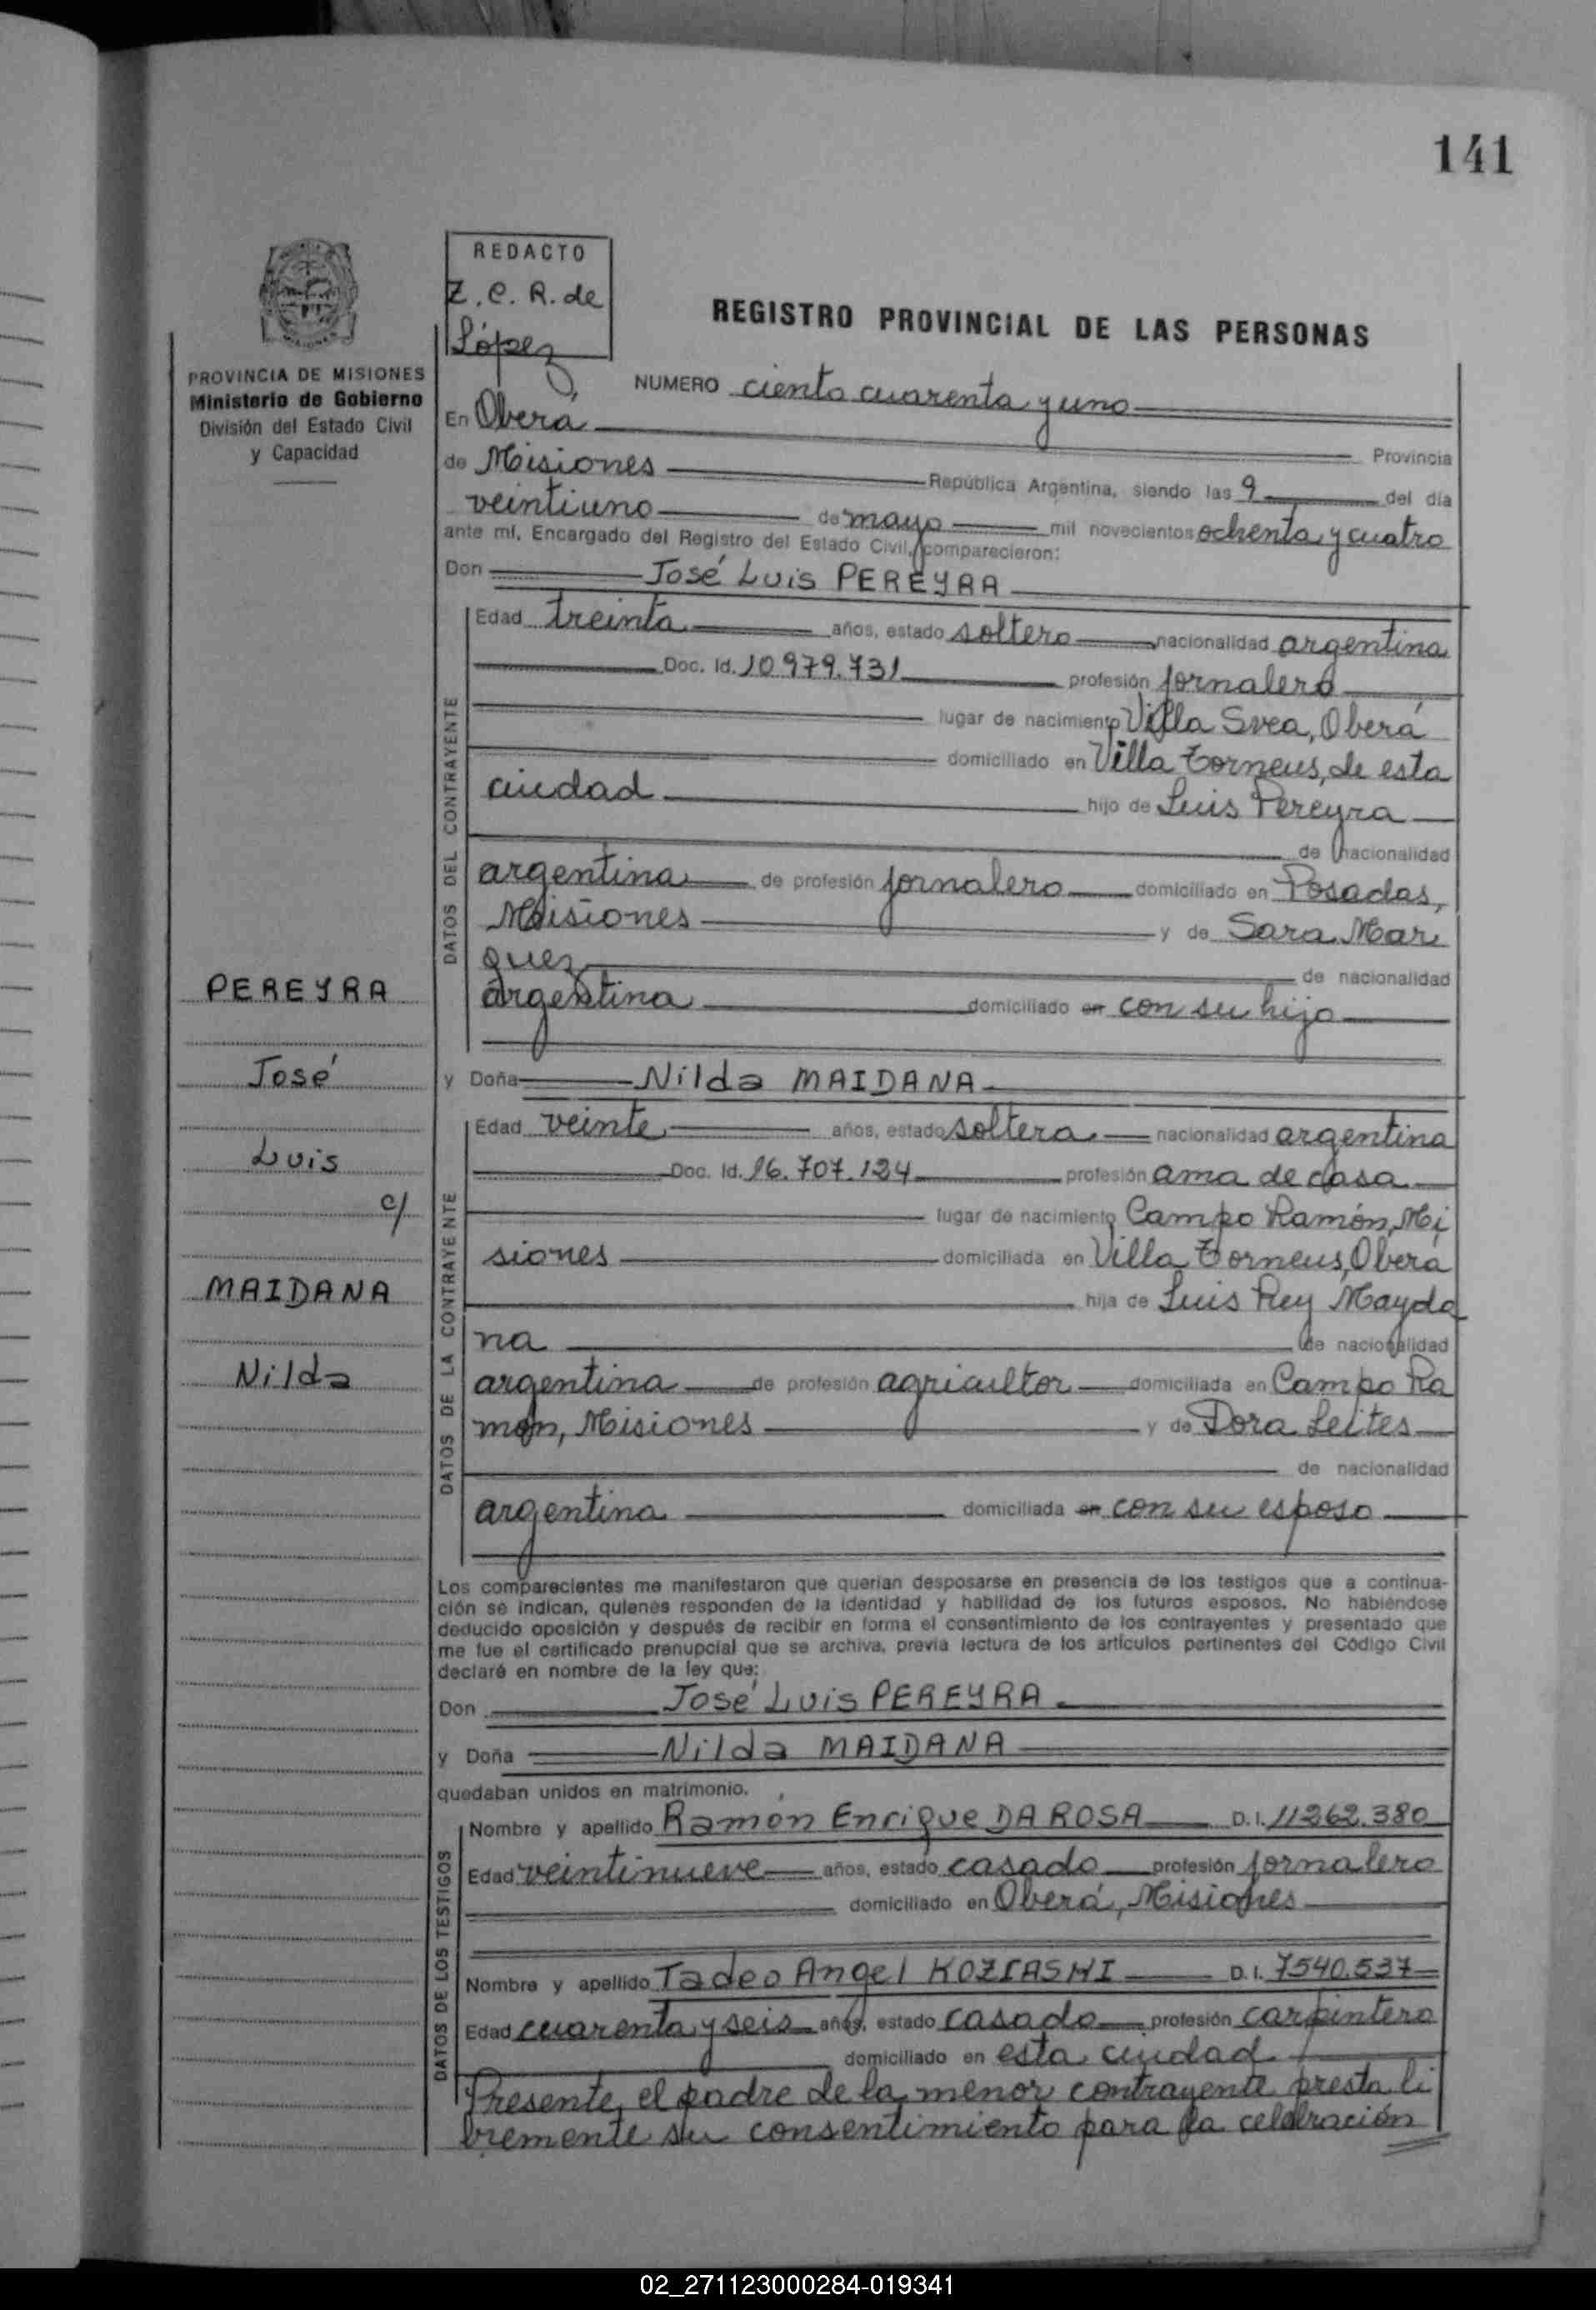 141
REDACTO
Z. C. R. de
López
REGISTRO PROVINCIAL DE LAS PERSONAS
PROVINCIA DE MISIONES
Ministerio de Gobierno
División del Estado Civil
y Capacidad
NUMERO ciento cuarenta y uno
En Oberá
Provincia
de Misiones República Argentina, siendo las 9 del día
veintiuno de mayo mil novecientos ochenta y cuatro
ante mí, Encargado del Registro del Estado Civil, comparecieron:
Don José Luis PEREYRA
DATOS DEL CONTRAYENTE
Edad treinta años, estado soltero nacionalidad argentina
Doc. Id. 10979.731 profesión jornalero
lugar de nacimiento Villa Svea, Oberá
domiciliado en Villa Torneus, de esta
ciudad hijo de Luis Pereyra
de nacionalidad
argentina de profesión jornalero domiciliado en Posadas,
Misiones y de Sara Mar
quez de nacionalidad
argentina domiciliado en con su hijo
y Doña Nilda MAIDANA
DATOS DE LA CONTRAYENTE
Edad veinte años, estado soltera nacionalidad argentina
Doc. Id. 16.707.124 profesión ama de casa
lugar de nacimiento Campo Ramón, Mi
siones domiciliada en Villa Torneus, Oberá
hija de Luis Rey Mayda
na de nacionalidad
argentina de profesión agricultor domiciliada en Campo Ra
món, Misiones y de Dora Leites
de nacionalidad
argentina domiciliada en con su esposo
PEREYRA
José
Luis
c/
MAIDANA
Nilda
Los comparecientes me manifestaron que querían desposarse en presencia de los testigos que a continua-
ción se indican, quienes responden de la identidad y habilidad de los futuros esposos. No habiéndose
deducido oposición y después de recibir en forma el consentimiento de los contrayentes y presentado que
me fue el certificado prenupcial que se archiva, previa lectura de los artículos pertinentes del Código Civil
declaré en nombre de la ley que:
Don José Luis PEREYRA
y Doña Nilda MAIDANA
quedaban unidos en matrimonio.
DATOS DE LOS TESTIGOS
Nombre y apellido Ramón Enrique DA ROSA D.I. 11262.380
Edad veintinueve años, estado casado profesión jornalero
domiciliado en Oberá, Misiones
Nombre y apellido Tadeo Angel KOZIASKI D.I. 7540.537
Edad cuarenta y seis años, estado casado profesión carpintero
domiciliado en esta ciudad
Presente, el padre de la menor contrayente presta li
bremente su consentimiento para la celebración
02_271123000284-019341